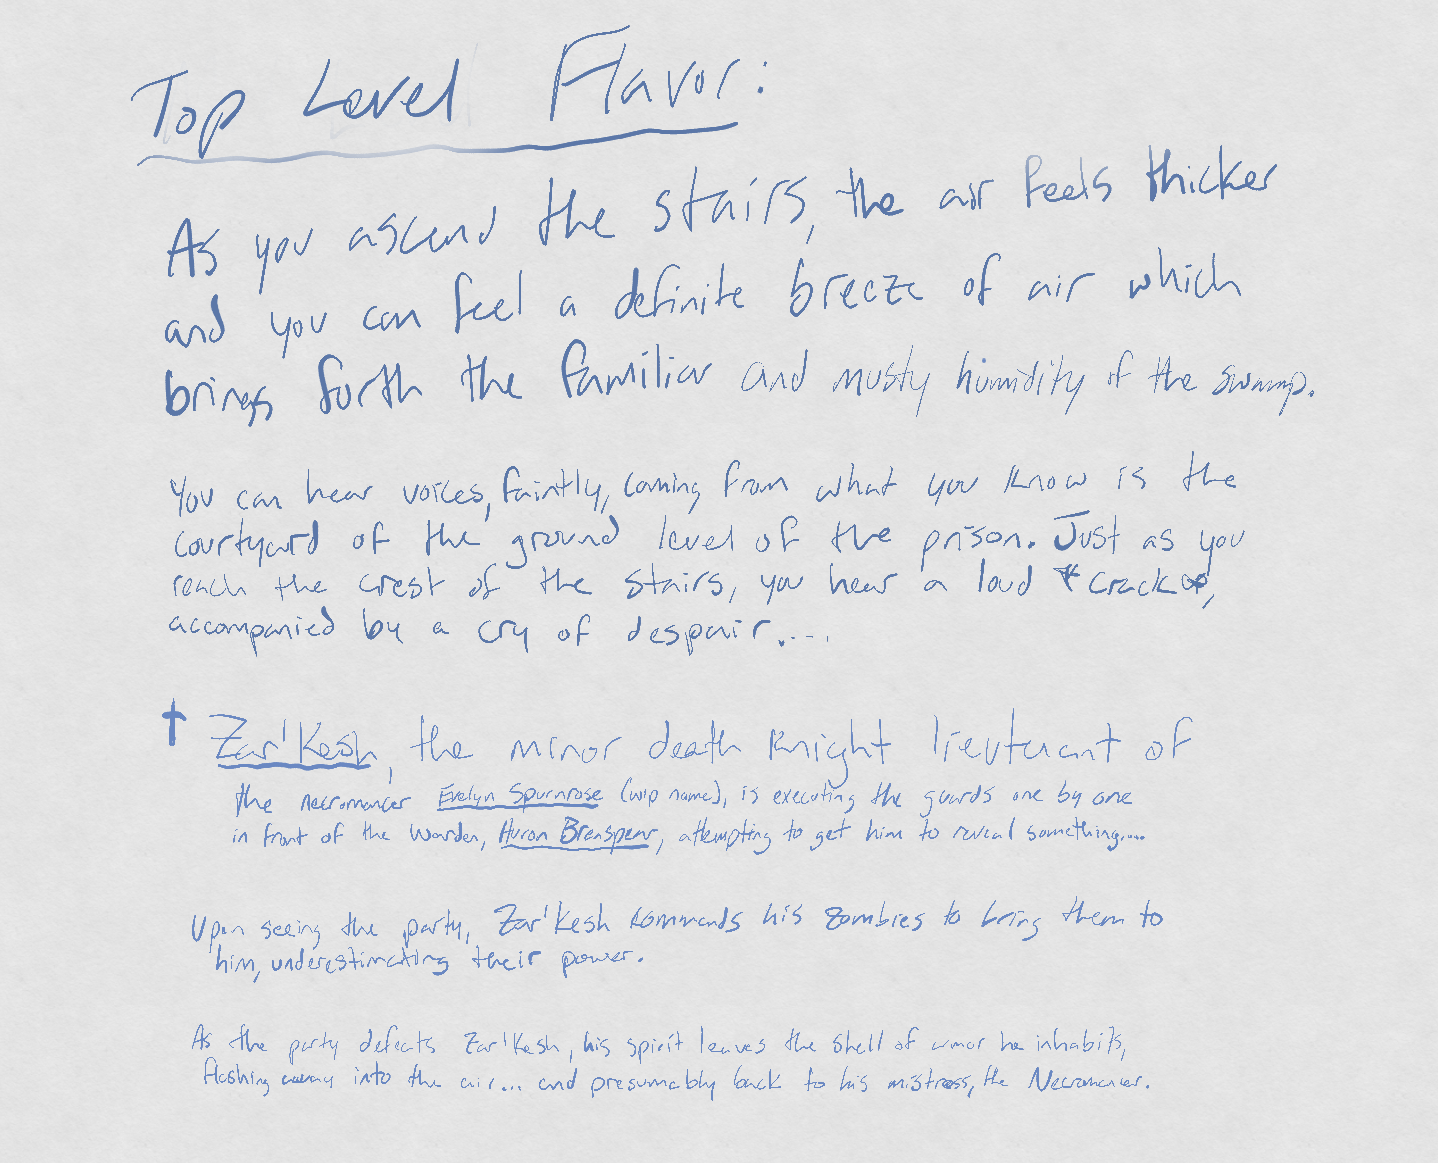 Top Level Flavor:
As you ascend the stairs, the air feels thicker
and you can feel a definite breeze of air which
brings forth the familiar and musty humidity of the swamp.
You can hear voices, faintly, coming from what you know is the
courtyard of the ground level of the prison. Just as you
reach the crest of the stairs, you hear a loud *crack*,
accompanied by a cry of despair....
† Zar'Kesh, the minor death knight lieutenant of
the necromancer Evelyn Spurnrose (wip name), is executing the guards one by one
in front of the Warden, Huron Brenspear, attempting to get him to reveal something....
Upon seeing the party, Zar'Kesh kommands his zombies to bring them to
him, underestimating their power.
As the party defeats Zar'Kesh, his spirit leaves the shell of armor he inhabits,
flashing away into the air... and presumably back to his mistress, the Necromancer.